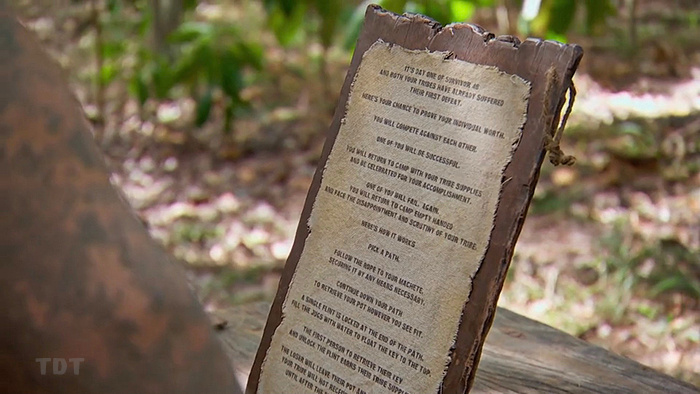 IT'S DAY ONE OF SURVIVOR 46
AND BOTH YOUR TRIBES HAVE ALREADY SUFFERED
THEIR FIRST DEFEAT.
HERE'S YOUR CHANCE TO PROVE YOUR INDIVIDUAL WORTH.
YOU WILL COMPETE AGAINST EACH OTHER.
ONE OF YOU WILL BE SUCCESSFUL.
YOU WILL RETURN TO CAMP WITH YOUR TRIBE SUPPLIES
AND BE CELEBRATED FOR YOUR ACCOMPLISHMENT.
ONE OF YOU WILL FAIL. AGAIN.
YOU WILL RETURN TO CAMP EMPTY HANDED
AND FACE THE DISAPPOINTMENT AND SCRUTINY OF YOUR TRIBE.
HERE'S HOW IT WORKS.
PICK A PATH.
FOLLOW THE ROPE TO YOUR MACHETE,
SECURING IT BY ANY MEANS NECESSARY.
CONTINUE DOWN YOUR PATH
TO RETRIEVE YOUR POT HOWEVER YOU SEE FIT.
A SINGLE FLINT IS LOCKED AT THE END OF THE PATH.
FILL THE JUGS WITH WATER TO FLOAT THE KEY TO THE TOP.
THE FIRST PERSON TO RETRIEVE THEIR KEY
AND UNLOCK THE FLINT EARNS THEIR TRIBE
THE LOSER WILL LEAVE THEIR POT AN
YOUR TRIBE WILL NOT
UNTIL AFTER THE
TDT